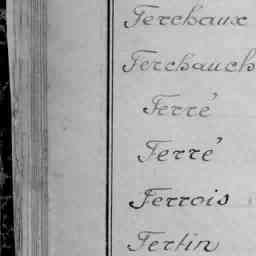 Ferchaux
Ferchauch
Ferré
Ferré
Ferrois
Fertin